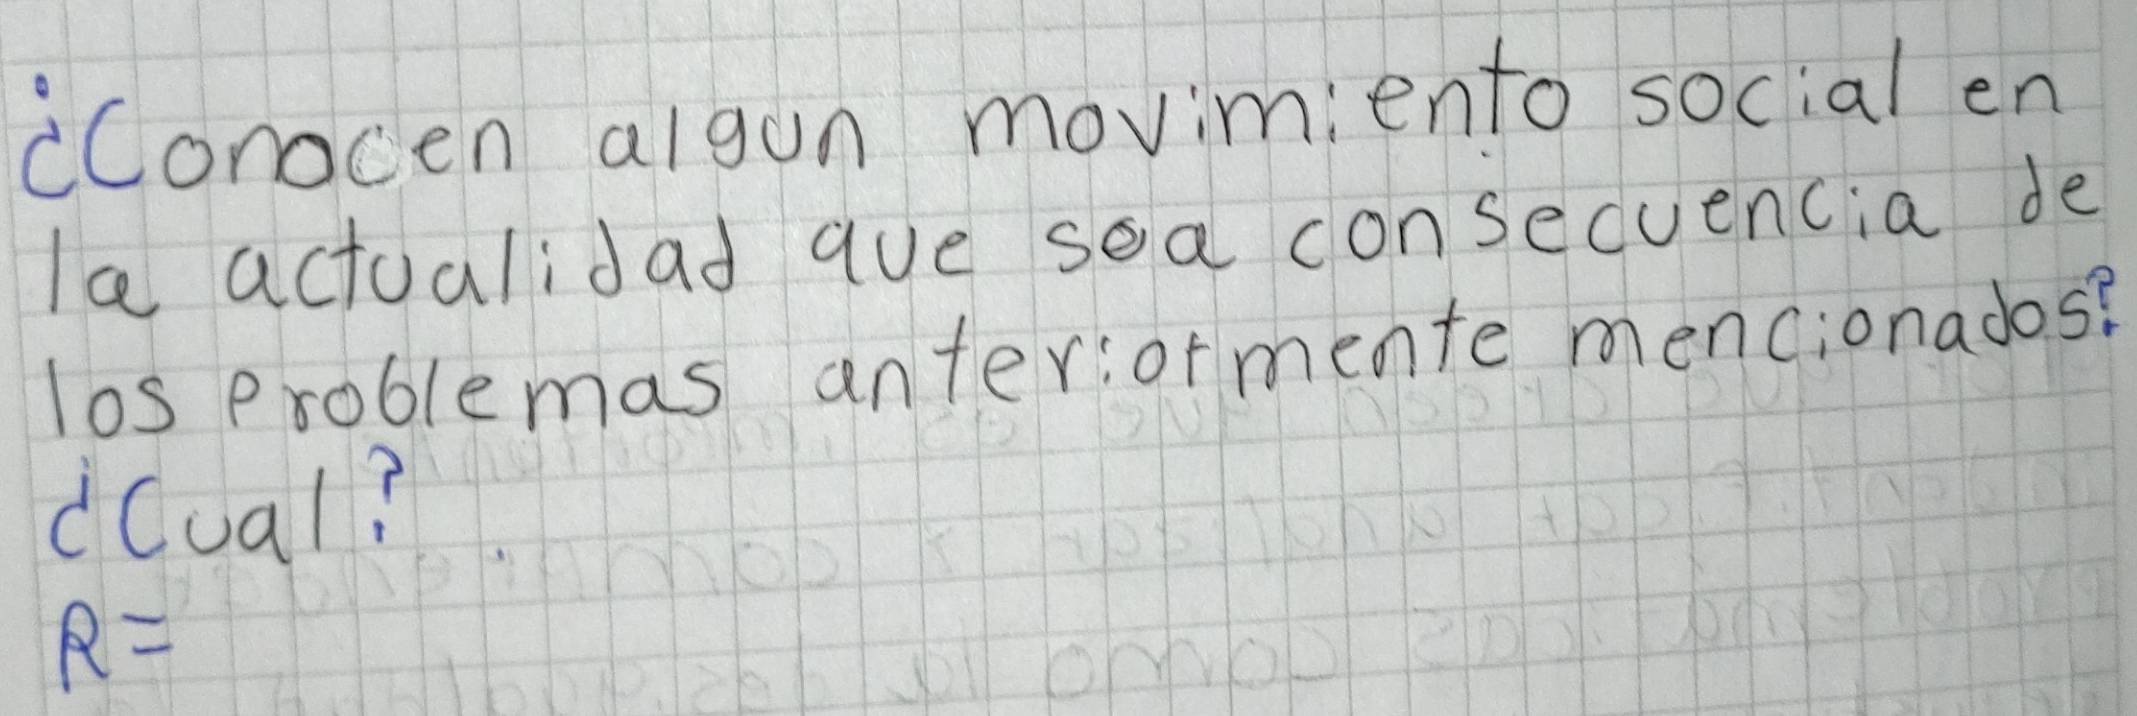 ¿Conocen algun movimiento social en
la actualidad que sea consecuencia de
los problemas anteriormente mencionados?
¿Cual?
R=